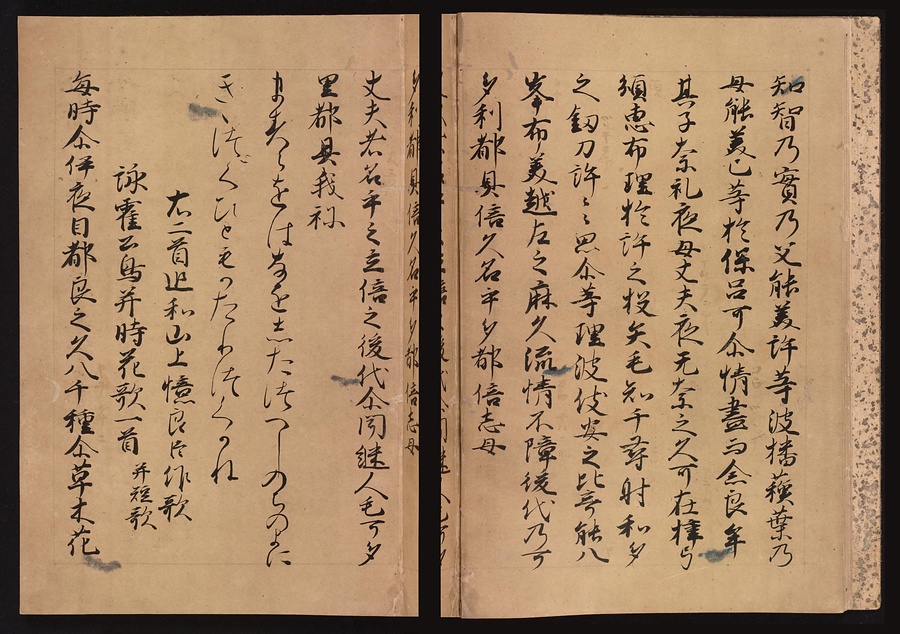 知智乃實乃父能美許等波播蘓葉乃
母能美己等於保呂可尓情盡而念良牟
其子奈礼夜母丈夫夜无奈之久可在梓弓
須恵布理於許之投矢毛知千尋射和多
之釼刀許々思尓等理波伎安之比奇能八
峯布美越左之麻久流情不障後代乃可
多利都具倍久名乎多都倍志母
丈夫者名乎之立倍之後代尓聞継人毛可多
里都具我祢
ますらをはなをしたつへしのちのよに
きゝつくひともかたりつくかね
右二首追和山上憶良臣作歌
詠霍公鳥并時花歌一首 并短歌
毎時尓伊夜目都良之久八千種尓草木花